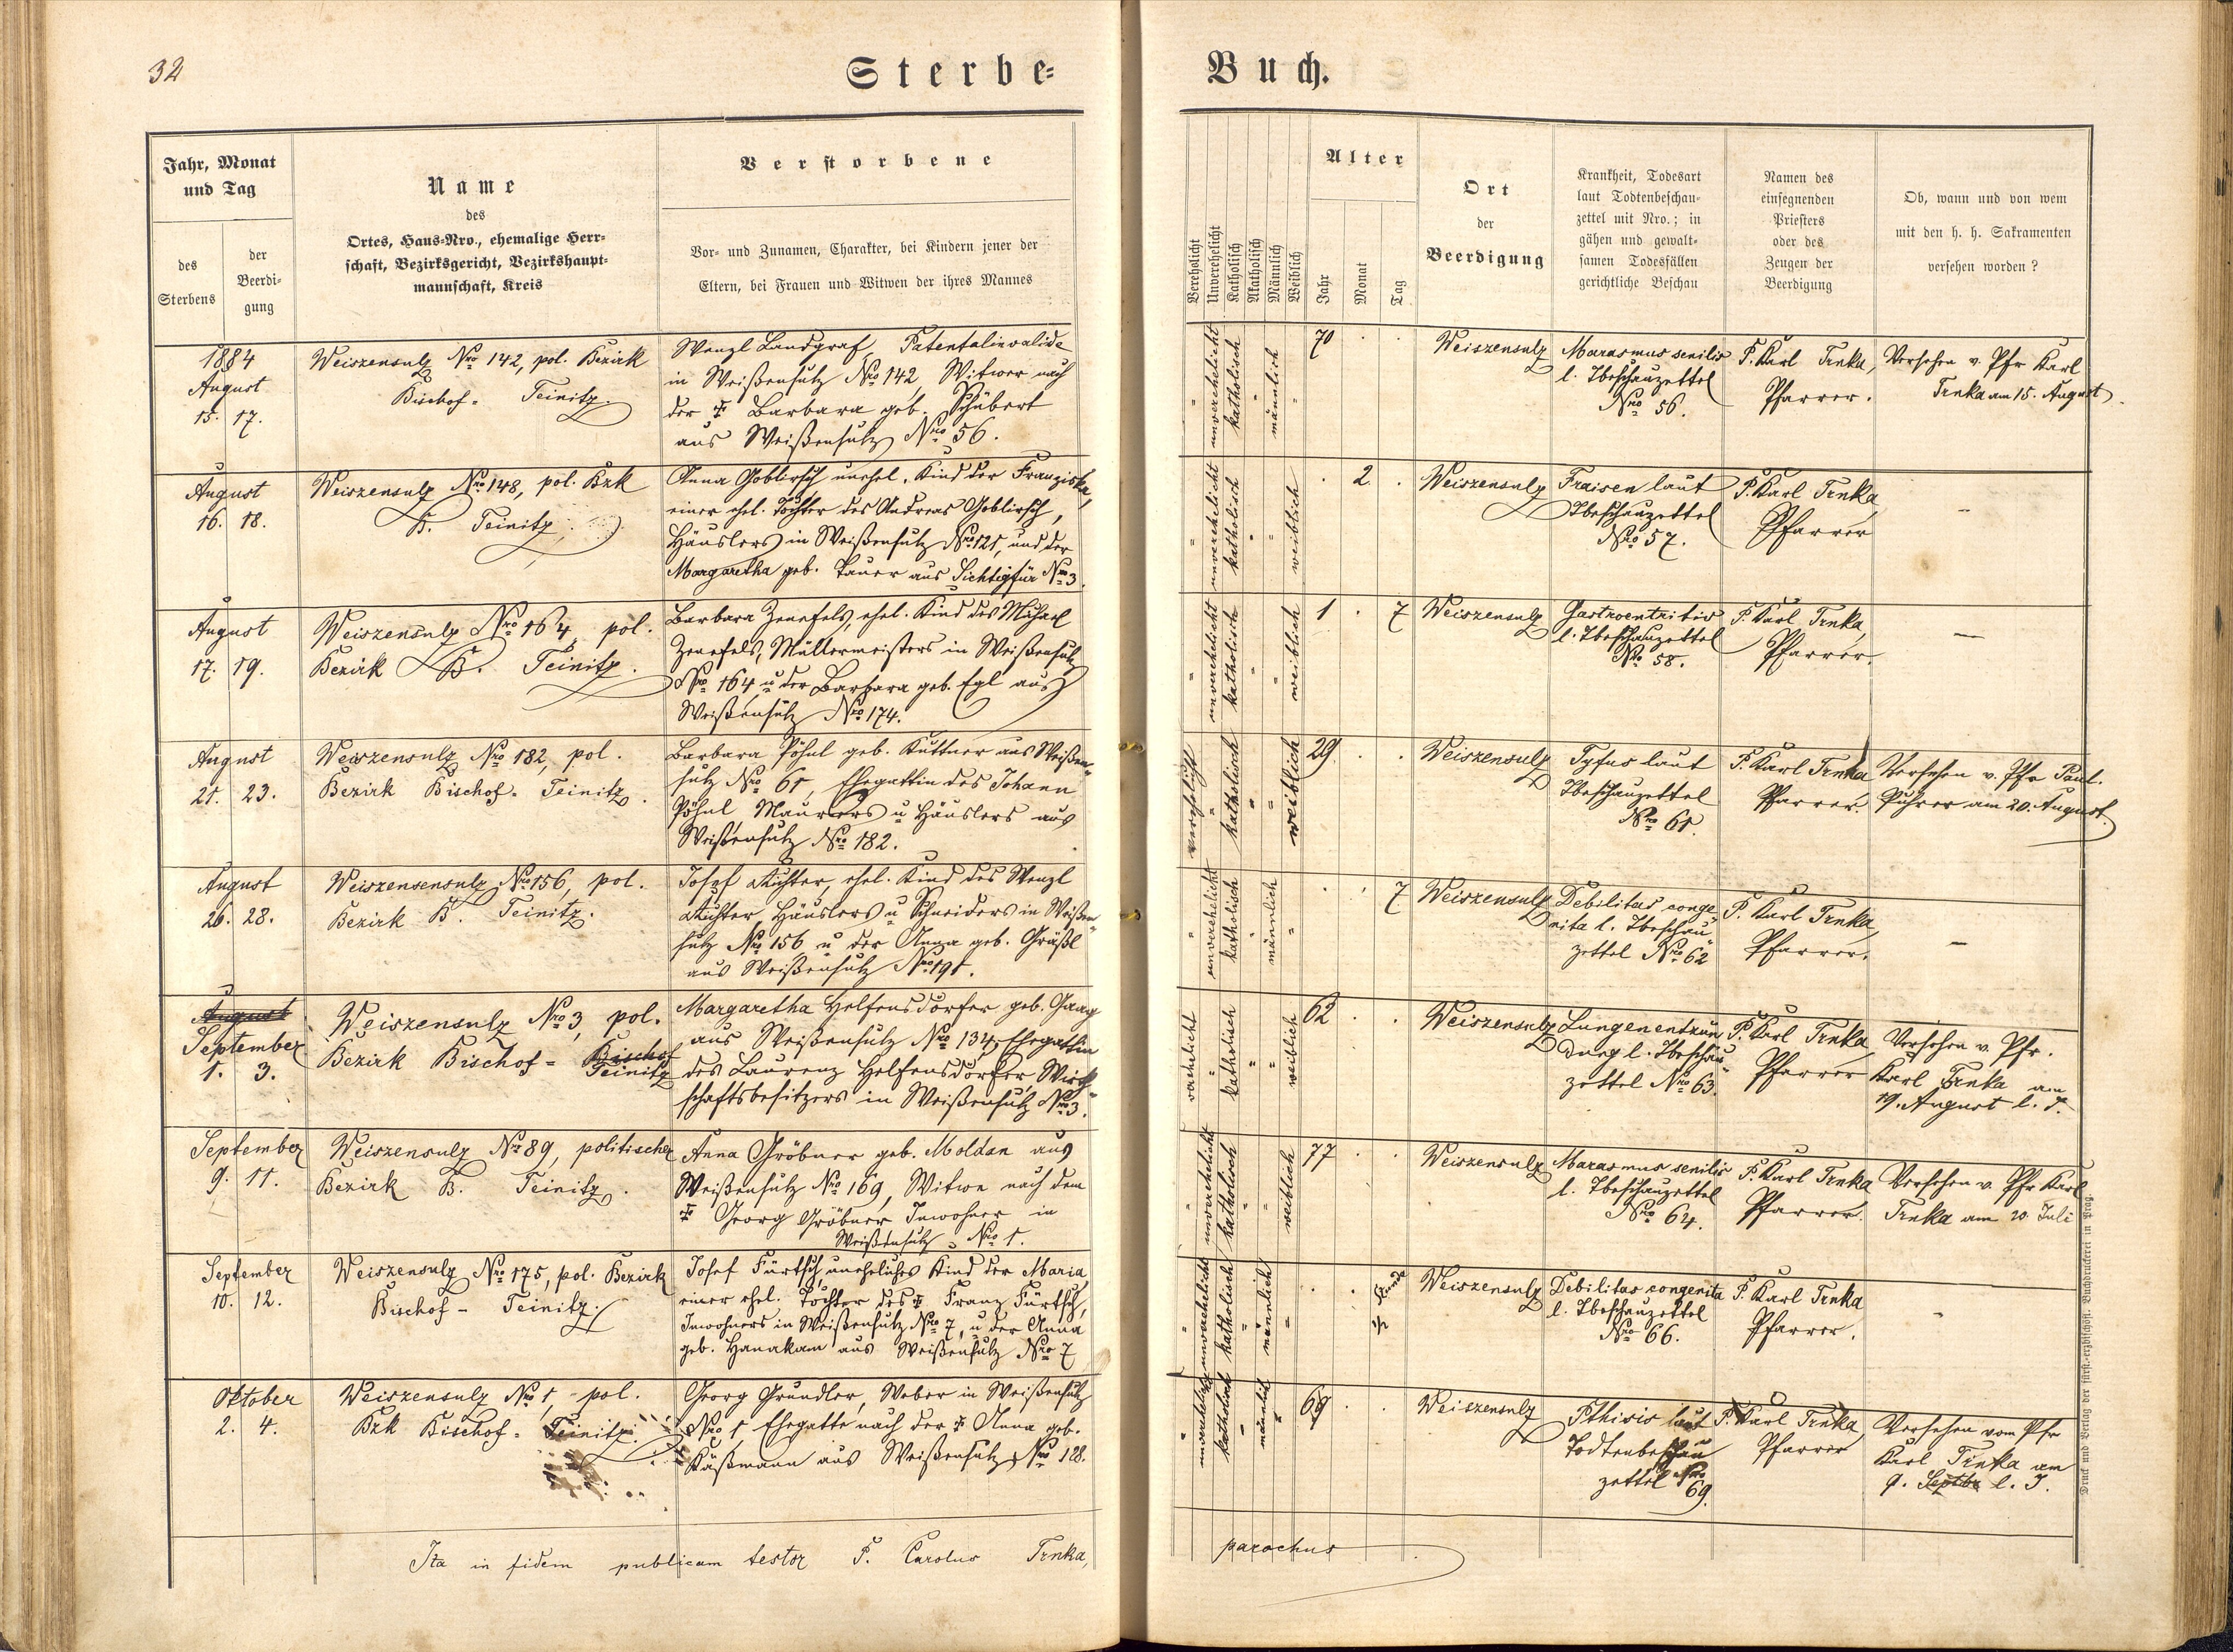 32
Sterbe=
Buch.
Jahr, Monat
und Tag
des
Sterbens
der
Beerdi-
gung
Name
des
Ortes, Haus-Nro., ehemalige Herr-
schaft, Bezirksgericht, Bezirkshaupt-
mannschaft, Kreis
Verstorbene
Vor- und Zunamen, Charakter, bei Kindern jener der
Eltern, bei Frauen und Witwen der ihres Mannes
Verehelicht
Unverehelicht
Katholisch
Akatholisch
Männlich
Weiblich
Alter
Jahr
Monat
Tag
Ort
der
Beerdigung
Krankheit, Todesart
laut Todtenbeschau-
zettel mit Nro.; in
gähen und gewalt-
samen Todesfällen
gerichtliche Beschau
Namen des
einsegnenden
Priesters
oder des
Zeugen der
Beerdigung
Ob, wann und von wem
mit den h. h. Sakramenten
versehen worden?
1884
August
15. 17.
Weiszensulz Nro 142, pol. Bezirk
Bischof- Teinitz.
Wenzl Landgraf, Patentalinvalide
in Weißensulz Nro 142, Witwer nach
der † Barbara geb. Schübert
aus Weißensulz Nro 56.
" unverehelicht katholisch " männlich "
70 . .
Weiszensulz
Marasmus senilis
l. Tbeschauzettel
Nro 56.
P. Karl Trnka,
Pfarrer.
Versehen v. Pfr Karl
Trnka am 15. August.
August
16. 18.
Weiszensulz Nro 148, pol. Bzk
B. Teinitz.
Anna Goblirsch unehel. Kind der Franziska,
einer ehel. Tochter des Andreas Goblirsch,
Häuslers in Weißensulz Nro 121, und der
Margaretha geb. Bauer aus Sichtigfür Nro 3.
" unverehelicht katholisch " " weiblich
. 2 .
Weiszensulz
Fraisen laut
Tbeschauzettel
Nro 57.
P. Karl Trnka
Pfarrer
–
August
17. 19.
Weiszensulz Nro 164, pol.
Bezirk B. Teinitz.
Barbara Zenefels, ehel. Kind des Michael
Zenefels, Müllermeisters in Weißensulz
Nro 164 u der Barbara geb. Egl aus
Weißensulz Nro 174.
" unverehelicht katholisch " " weiblich
1 . 7
Weiszensulz
Gastroentritis
l. Tbeschauzettel
Nro 58.
P. Karl Trnka,
Pfarrer.
–
August
21. 23.
Weiszensulz Nro 182, pol.
Bezirk Bischof- Teinitz.
Barbara Pöhnl geb. Kuttner aus Weißen-
sulz Nro 61, Ehegattin des Johann
Pöhnl Maurers u Häuslers aus
Weißensulz Nro 182.
verehelicht " katholisch " " weiblich
29 . .
Weiszensulz
Tyfus laut
Tbeschauzettel
Nro 61.
P. Karl Trnka
Pfarrer.
Versehen v. Pfr Paul.
am 20. August.
August
26. 28.
Weiszensensulz Nro 156, pol.
Bezirk B. Teinitz.
Josef Richter, ehel. Kind des Wenzl
Richter, Häuslers u Schneiders in Weißen-
sulz Nro 156 u der Anna geb. Gräßl
aus Weißensulz Nro 191.
" unverehelicht katholisch " männlich "
. . 7
Weiszensulz
Debilitas conge-
nita l. Tbeschau-
zettel Nro 62
P. Karl Trnka,
Pfarrer.
–
August
September
1. 3.
Weiszensulz Nro 3, pol.
Bezirk Bischof- Bischof
Teinitz
Margaretha Helfensdörfer geb. Gaag
aus Weißensulz Nro 134, Ehegattin
des Laurenz Helfensdörfer, Wirth-
schaftsbesitzers in Weißensulz Nro 3.
verehelicht " katholisch " " weiblich
62 . .
Weiszensulz
Lungenentzün-
dung l. Tbeschau-
zettel Nro 63.
P. Karl Trnka
Pfarrer
Versehen v. Pfr.
Karl Trnka am
19. August l. J.
September
9. 11.
Weiszensulz Nro 89, politischer
Bezirk B. Teinitz.
Anna Gröbner geb. Moldan aus
Weißensulz Nro 169, Witwe nach dem
† Georg Gröbner Inwohner in
Weißensulz Nro 1.
" unverehelicht katholisch " " weiblich
77 . .
Weiszensulz
Marasmus senilis
l. Tbeschauzettel
Nro 64.
P. Karl Trnka
Pfarrer.
Versehen v. Pfr Karl
Trnka am 20. Juli
September
10. 12.
Weiszensulz Nro 175, pol. Bezirk
Bischof- Teinitz.
Josef Fürtsch, uneheliches Kind der Maria,
einer ehel. Tochter des † Franz Fürtsch,
Inwohners in Weißensulz Nro 7, u der Anna
geb. Hanakam aus Weißensulz Nro 7
" unverehelicht katholisch " männlich "
. . 1/2 Stunde
Weiszensulz
Debilitas congenita
l. Tbeschauzettel
Nro 66.
P. Karl Trnka
Pfarrer.
-
Oktober
2. 4.
Weiszensulz Nro 1, pol.
Bzk Bischof- Teinitz.
Georg Gründler, Weber in Weißensulz
Nro 1 Ehegatte nach der † Anna geb.
Käßmann aus Weißensulz Nro 128.
" unverehelicht katholisch " männlich "
69 . .
Weiszensulz
Fthisis laut
Todtenbeschau
zettel Nro
69.
P. Karl Trnka
Pfarrer
Versehen vom Pfr
Karl Trnka am
9. Septbr l. J.
Ita in fidem publicam testor P. Carolus Trnka,
parochus
Druck und Verlag der fürst.-erzbischöfl. Buchdruckerei in Prag.